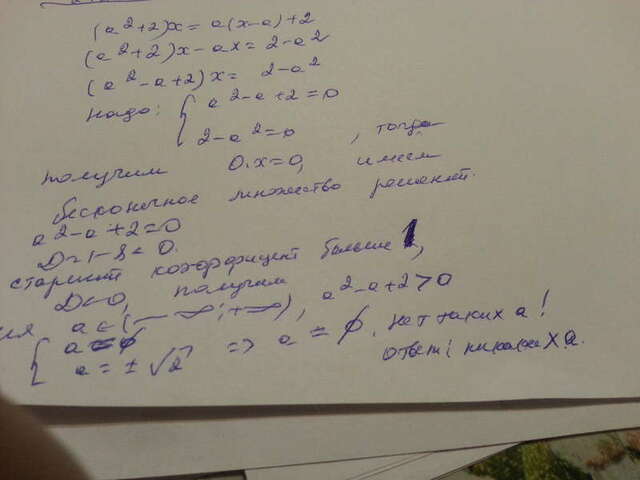 (a²+2)x = a(x-a)+2
(a²+2)x-ax = 2-a²
(a²-a+2)x = 2-a²
надо: { a²-a+2=0
2-a²=0, тогда
получим 0·x=0, имеем
бесконечное множество решений.
a²-a+2=0
D=1-8<0.
старший коэффициент больше 1,
D<0, получим a²-a+2>0
a∈(-∞;+∞),
{ a=∅
a=±√2 => a=∅. нет таких a!
ответ: никаких a.